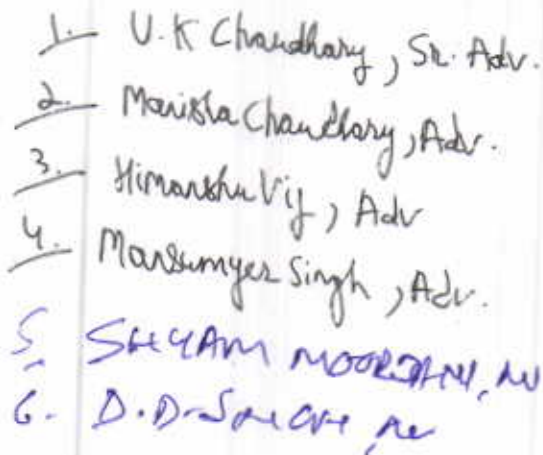 1. U.K Chaudhary, Sr. Adv.
2. Manisha Chaudhary, Adv.
3. Himanshu Vij, Adv
4. Mansumyer Singh, Adv.
5. SHYAM MOORJANI,
6. D.D.